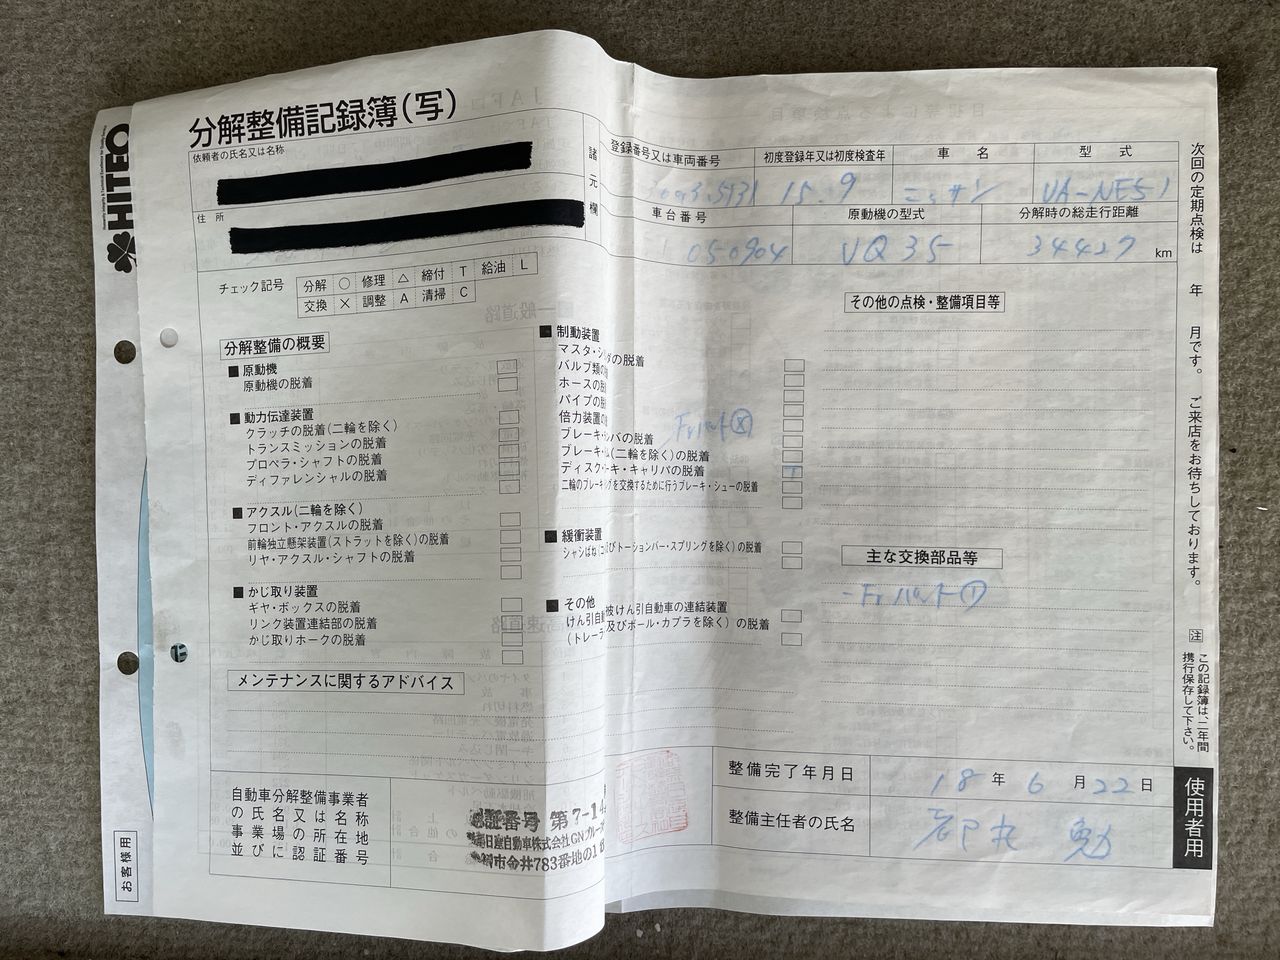 分解整備記録簿(写)
依頼者の氏名又は名称
住所
諸元欄
登録番号又は車両番号
初度登録年又は初度検査年
車名
型式
15.9
ニッサン
UA-NE51
車台番号
原動機の型式
分解時の総走行距離
050904
VQ35
34427 km
チェック記号
分解 ○ 修理 △ 締付 T 給油 L
交換 × 調整 A 清掃 C
分解整備の概要
■ 原動機
原動機の脱着
■ 動力伝達装置
クラッチの脱着(二輪を除く)
トランスミッションの脱着
プロペラ・シャフトの脱着
ディファレンシャルの脱着
■ アクスル(二輪を除く)
フロント・アクスルの脱着
前輪独立懸架装置(ストラットを除く)の脱着
リヤ・アクスル・シャフトの脱着
■ かじ取り装置
ギヤ・ボックスの脱着
リンク装置連結部の脱着
かじ取りホークの脱着
メンテナンスに関するアドバイス
■ 制動装置
マスタ・シ
の脱着
バルブ類の
ホースの
パイプの
倍力装置の
ブレーキ・
バの脱着
Frパット
ブレーキ・
(二輪を除く)の脱着
ディスク・
ーキ・キャリパの脱着
T
二輪のブレーキ
を交換するために行うブレーキ・シューの脱着
■ 緩衝装置
シャシばね(
びトーションバー・スプリングを除く)の脱着
■ その他
けん引自
被けん引自動車の連結装置
(トレー
及びボール・カプラを除く)の脱着
その他の点検・整備項目等
主な交換部品等
-Frパット①
自動車分解整備事業者
の氏名又は名称
事業場の所在地
並びに認証番号
証番号 第7-1
日産自動車株式会社GN
市今井783番地の1
整備完了年月日
18年6月22日
整備主任者の氏名
勉
次回の定期点検は 年 月です。ご来店をお待ちしております。
注 この記録簿は、二年間携行保存して下さい。
使用者用
HITEQ
お客様用